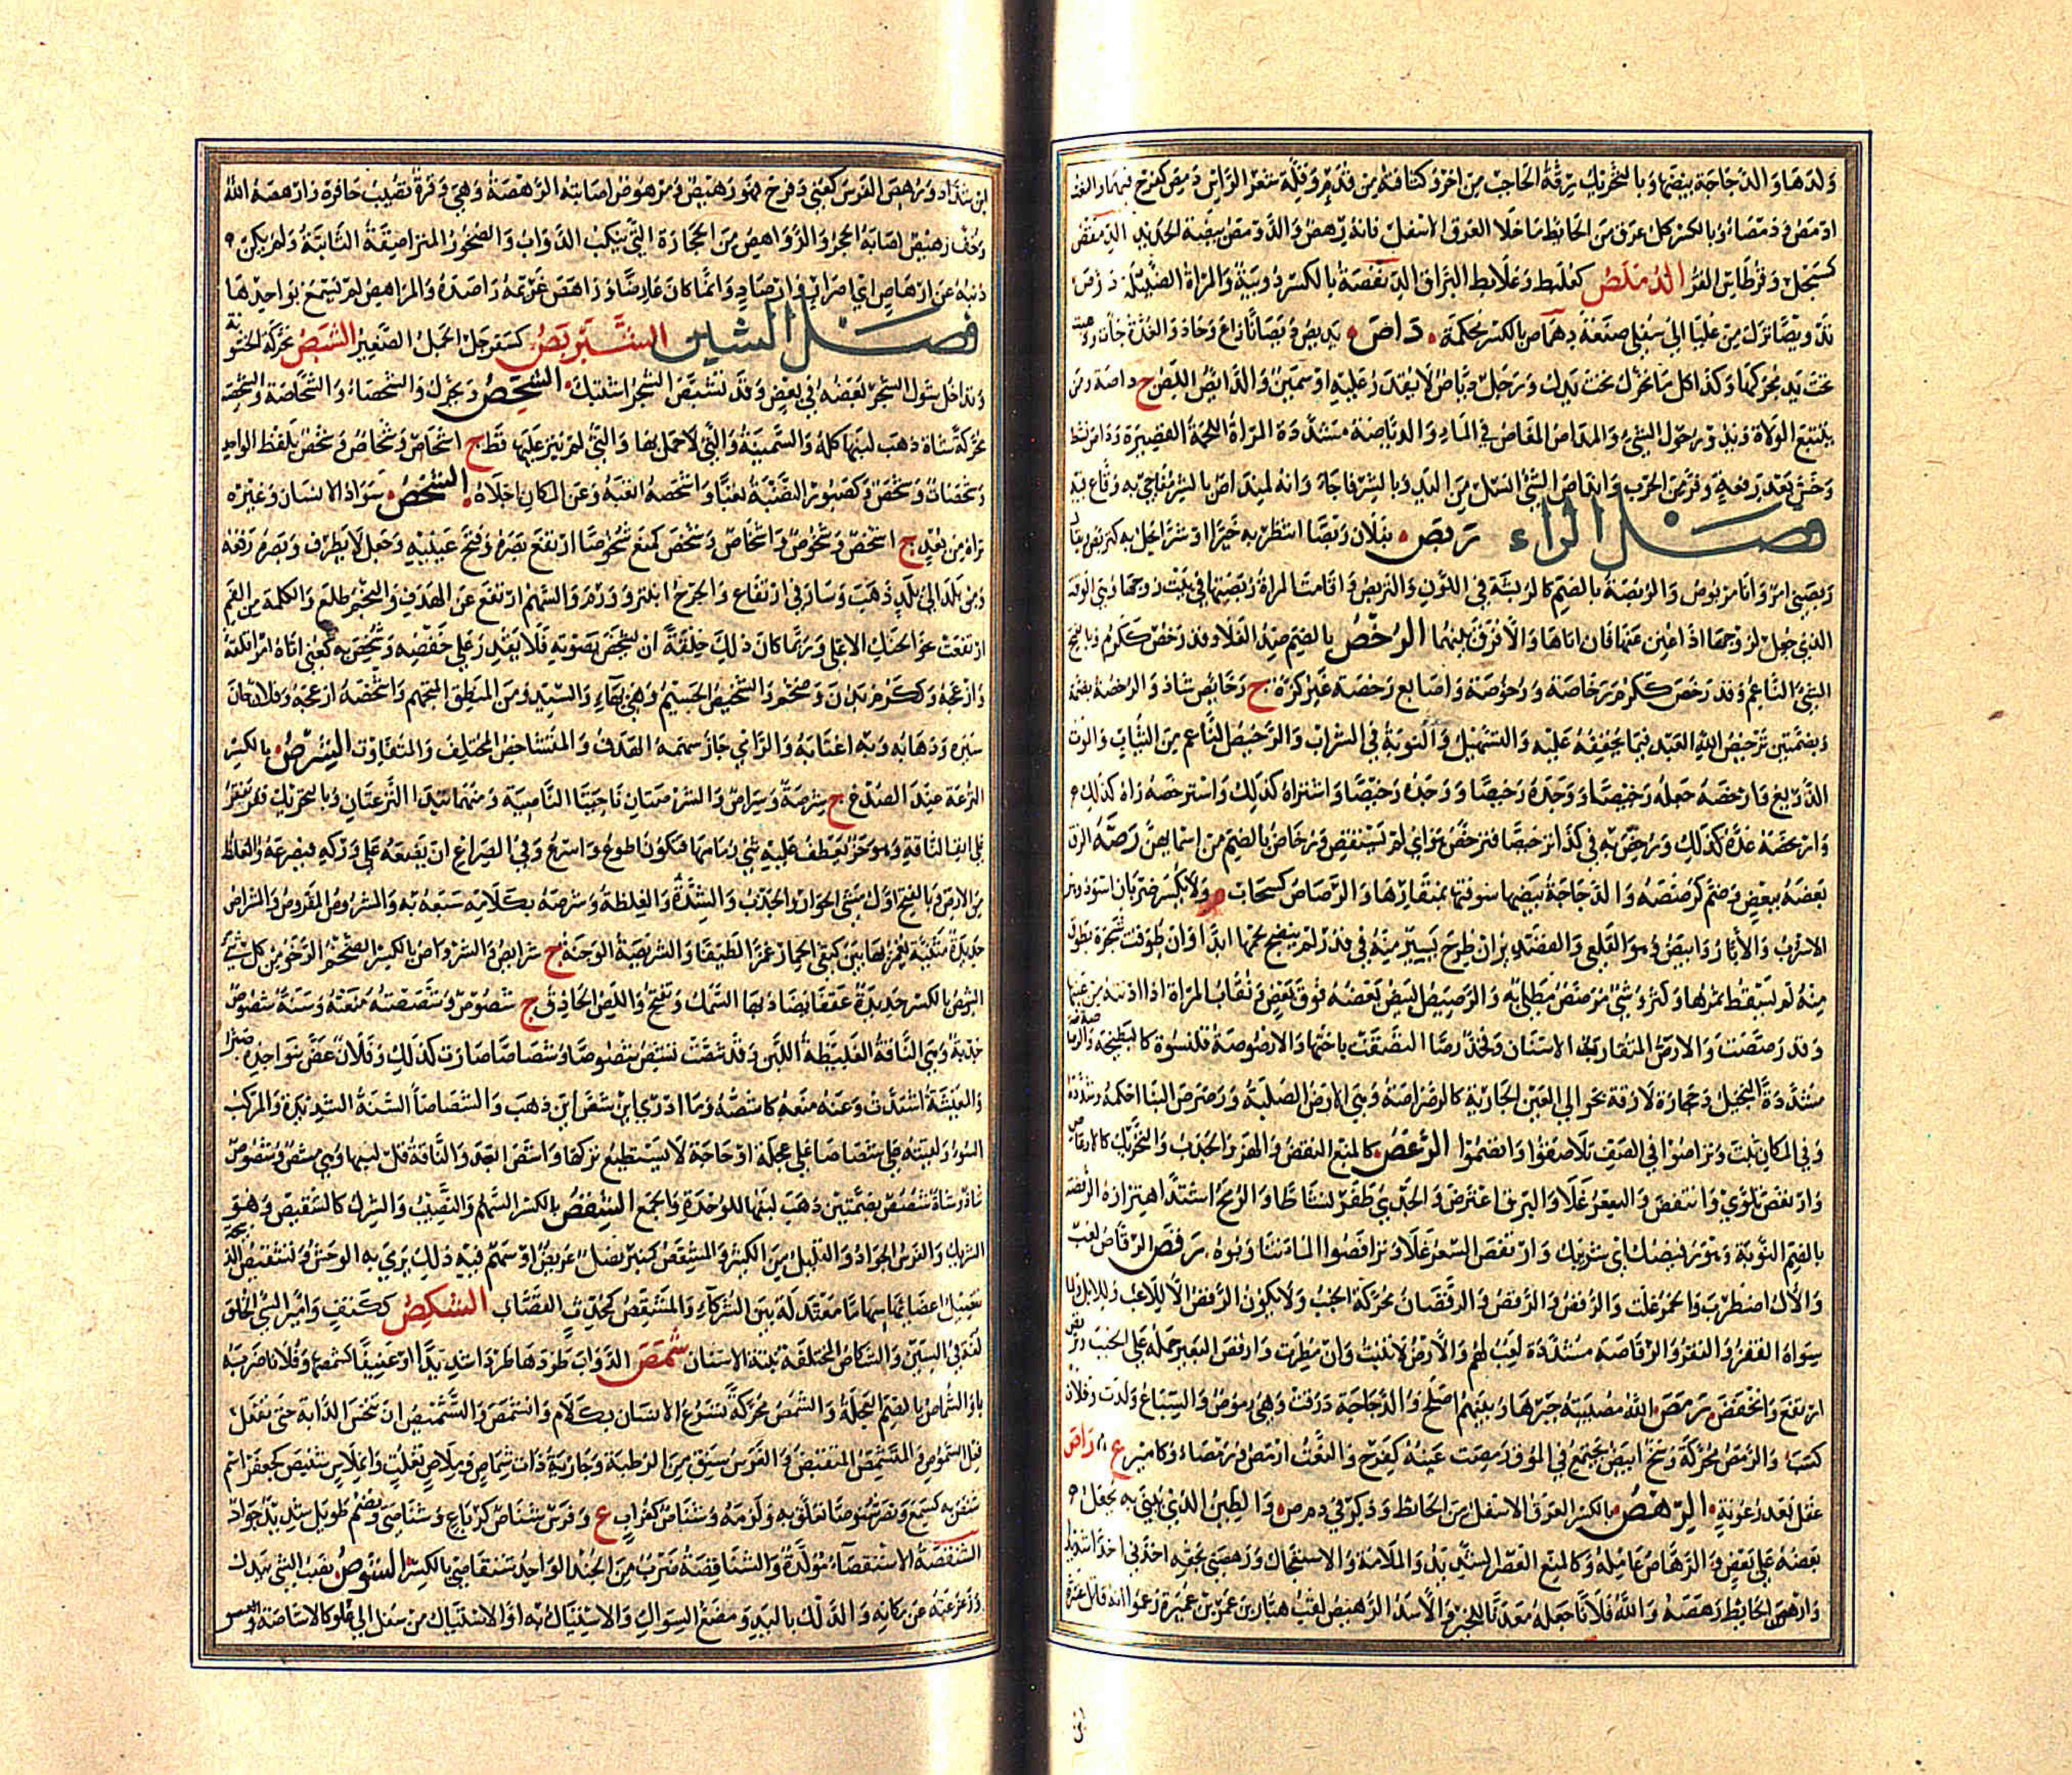 ولدها والدجاجة ببيضها وبالتحريك رقة الحاجب من اخر وكثافة من قدم وقلة شعر الراس دمص كفرح فيهما والنعت
ادمص ودمصاء وبالكسر كل عرق من الحائط ما خلا العرق الاسفل فانه رهص والدومص بيضة الحديد الدمقص
كسبحل وقرطاس القز الدملص كعلبط وعلابط البراق الدنفصة بالكسر دويبة والمراة الضئيلة
من عليا الى سفلى صنعة دهماص بالكسر محكمة داص يديص ديصانا زاغ وحاد والغدة جاءت وذهبت
تحت يد محركها وكذا كل ما تحرك تحت يدك ورجل دياص لا يقدر عليه او سمين والدائص اللص ج داصة ومن
يتبع الولاة ويدور حول الشيء والمداص المغاص في الماء والدياصة مشددة المراة اللحيمة القصيرة وداص نشط
وخس بعد رفعة وفر من الحرب وانداص الشيء انسل من اليد وبالشر فاجا وانه لمنداص بالشر مفاجئ به وقاع فيه
فصل الراء ربص بفلان ربصا انتظر به خيرا او شرا يحل به كتربص ويقال
ربصني امر وانا مربوص والربصة بالضم كالربشة في اللون والتربص واقامت المراة ربصتها في بيت زوجها وهي الوقت
الذي جعل لزوجها اذا عنن عنها فان اتاها والا فرق بينهما الرخص بالضم ضد الغلاء وقد رخص ككرم وبالفتح
الشيء الناعم وقد رخص ككرم رخاصة ورخوصة واصابع رخصة غير كزة ج رخائص شاذ والرخصة بضمة
وبضمتين ترخيص الله للعبد فيما يخففه عليه والتسهيل والنوبة في الشرب والرخيص الناعم من الثياب والموت
الذريع وارخصه جعله رخيصا ووجده رخيصا واشتراه كذلك واسترخصه راه كذلك
وارتخصه عده كذلك ورخص له في كذا ترخيصا فترخص هو اي لم يستقص ورخاص بالضم من اسمائهن رصه الزق
بعضه ببعض وضم كرصصه والدجاجة بيضها سوتها بمنقارها والرصاص كسحاب ولا يكسر ضربان اسود وهو
الاسرب والابار وابيض وهو القلعي والقصدير ان طرح يسير منه في قدر لم ينضج لحمها ابدا وان طوقت شجرة بطوق
منه لم يسقط ثمرها وكثر وشيء مرصص مطلي به والرصيص البيض بعضه فوق بعض ونقاب المراة اذا ادنته من عينيها
وقد رصصت والارص المتقارب الاسنان وفخذ رصاء التصقت باختها والارصوصة قلنسوة كالبطيخة والرصاصة
مشددة البخيل وحجارة لازقة بحوالي العين الجارية كالرصراصة وهي الارض الصلبة ورصرص البنا احكمه وشدده
وفي المكان ثبت وتراصوا في الصف تلاصقوا وانضموا الرعص كالمنع النفض والهز والجذب والتحريك كالارعاص
وارتعص تلوى وانتفض والسعر غلا والبرق اعترض والجدي طفر نشاطا والرمح اشتد اهتزازه الرفصة
بالضم النوبة وهو رفيصك اي شريبك وارتفص السعر غلا وترافصوا الماء تناوبوه رقص الرقاص لعب
والآل اضطرب والخمر غلت والرقص والرقص والرقصان محركة الخبب ولا يكون الرقص الا للاعب وللابل ولما
سواه القفز والنقز والرقاصة مشددة لعبة لهم والارض لا تنبت وان مطرت وارقص البعير حمله على الخبب وترقص
ارتفع وانخفض رمص الله مصيبته جبرها وبينهم اصلح والدجاجة ذرقت وهي رموص والسباع ولدت وفلان
كسب والرمص محركة وسخ ابيض يجتمع في الموق رمصت عينه كفرح والنعت ارمص ورمصاء وكامير ع راص
عقل بعد رعونة الرهص بالكسر العرق الاسفل من الحائط وذكر في د م ص والطين الذي يبنى به يجعل
بعضه على بعض والرهاص عامله وكالمنع العصر الشديد والملامة والاستعجال ورهصني بحقه اخذني اخذا شديدا
وارهص الحائط رهصه والله فلانا جعله معدنا للخير والاسد الرهيص لقب هبار بن عمرو بن عميرة زعموا انه قاتل عنترة
بن شداد ورهص الفرس كعني وفرح فهو رهيص ومرهوص اصابته الرهصة وهي وقرة تصيب حافره وارهصه الله
وخف رهيص اصابه الحجر والرواهص من الحجارة التي تنكب الدواب والصخور المتراصفة الثابتة ولم يكن
ذنبه عن ارهاص اي اصرار وارصاد وانما كان عارضا وراهص غريمه راصده والمراهص لم يسمع بواحدها
فصل الشين الشبربص كسفرجل الجمل الصغير الشبص محركة الخشونة
وتداخل شوك الشجر بعضه في بعض وقد تشبص الشجر اشتبك الشحص ويحرك والشحصاء والشحاصة والشحصة
محركة شاة ذهب لبنها كله والسمينة والتي لا حمل بها والتي لم ينز عليها قط ج اشحاص وشحاص وشحص بلفظ الواحد
وشحصات وشحص كصبور النضبة تعبا واشحصه اتعبه وعن المكان اجلاه الشخص سواد الانسان وغيره
تراه من بعد ج اشخص وشخوص واشخاص وشخص كمنع شخوصا ارتفع بصره وفتح عينيه وجعل لا يطرف وبصره رفعه
ومن بلد الى بلد ذهب وسار في ارتفاع والجرح انتبر وورم والسهم ارتفع عن الهدف والنجم طلع والكلمة من الفم
ارتفعت نحو الحنك الاعلى وربما كان ذلك خلقة ان يشخص بصوته فلا يقدر على خفضه وشخص به كعني اتاه امر اقلقه
وازعجه وككرم بدن وضخم والشخيص الجسيم وهي بهاء والسيد ومن المنطق المتجهم واشخصه ازعجه وفلان حان
سيره وذهابه وبه اغتابه والرامي جاز سهمه الهدف والمتشاخص المختلف والمتفاوت الشرص بالكسر
النزعة عند الصدغ ج شرصة وشراص والشرصتان ناحيتا الناصية ومنهما تبدا النزعتان وبالتحريك فقر يفقر
على انف الناقة وهو حز يعطف عليه ثني زمامها فتكون اطوع واسرع وفي الصراع ان يضعه على وركه فيصرعه والغلظ
من الارض بالفتح اول مشي الحوار والجذب والشدة والغلظة وشرصه بكلامه سبعه به والمشروص المقروص والشراص
حديدة مثنية يغمز بها بين كتفي الحمار غمزا لطيفا والشريصة الوجنة ج شرائص والشرواص بالكسر الضخم الرخو من كل شيء
الشص بالكسر حديدة عقفاء يصاد بها السمك ويفتح واللص الحاذق ج شصوص وشصصته منعته وسنة شصوص
جدبة وهي الناقة الغليظة اللبن وقد شصت تشص شصوصا وشصاصا صارت كذلك وفلان عض نواجذه صبرا
والمعيشة اشتدت وعنه منعه كاشصه وما ادري اين شص اين ذهب والشصاصاء السنة الشديدة والمركب
السوء ولقيته على شصاصاء على عجلة او حاجة لا يستطيع تركها واشص ابعد والناقة قل لبنها وهي مشص وشصوص
شاذ وشاة شصص بضمتين ذهب لبنها للواحدة والجمع الشقص بالكسر السهم والنصيب والشرك كالشقيص وهو
الشريك والفرس الجواد والقليل من الكثير والمشقص كمنبر نصل عريض او سهم فيه ذلك يرمى به الوحش وتشقيص الذبيحة
تفصيل اعضائها سهاما معتدلة بين الشركاء والمشقص كمحدث القصاب الشكص ككتف وامير السيئ الخلق
لغة في السين والشكاص المختلفة نبتة الاسنان شمص الدواب طردها طردا شديدا او عنيفا كشمصها وفلانا ضربه
والشماص بالضم العجلة والشمص محركة تسرع الانسان بكلام وانشمص والتشميص ان تنخس الدابة حتى تفعل
فعل الشموص والمتشمص المتقبض والفرس سبق من الرطبة وجارية ذات شماص وملاص تفلت وانملاس شنبص كجعفر اسم
شنص به كسمع ونصر شنوصا تعلق به ولزمه وشناص كغراب ع وفرس شناص كرباع وشناصي ويضم طويل شديد جواد
الشنفصة الاستقصاء مولدة والشنافصة ضرب من الجند الواحد شنفاصي بالكسر الشوص نصب الشيء بيدك
وزعزعته عن مكانه والدلك باليد ومضغ السواك والاستياك به او الاستياك من سفل الى علو كالاشاصة